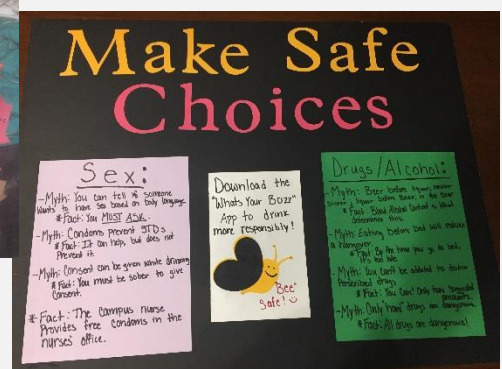 Make Safe
Choices
Sex:
-Myth: You can tell if someone
wants to have sex based on body language
*Fact: You MUST ASK.
-Myth: Condoms prevent STDs
*Fact: It can help, but does not
Prevent it
-Myth: Consent can be given while drinking
*Fact: You must be sober to give
Consent.
*Fact: The campus nurse
Provides free condoms in the
nurses' office.
Download the
"Whats Your Buzz"
App to drink
more responsibly!
"Bee"
Safe!
Drugs/Alcohol:
-Myth: Beer before liquor, never
Sicker; liquor before Beer, in the
*Fact: Blood Alcohol Content is what
determines this.
-Myth: Eating before bed will reduce
a hangover
*Fact: By the time you go to bed,
it's too late
-Myth: You can't be addicted to doctor
Perscribed drugs
*Fact: You Can! Only take
-Myth: Only "hard" drugs are dangerous.
*Fact: All drugs are dangerous!